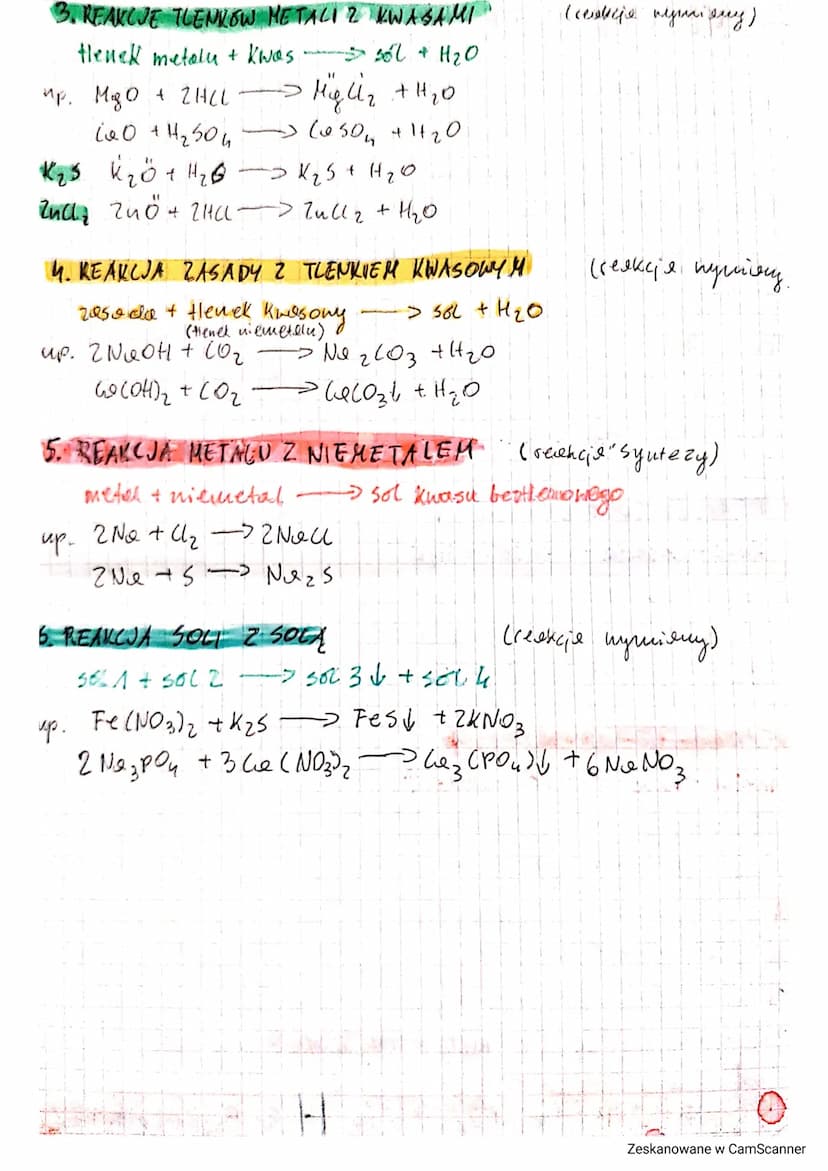 3. REAKCJE TLENKÓW METALI Z KWASAMI (reakcja wymiany)
tlenek metalu + kwas ⟶ sól + H₂O
np. MgO + 2HCl ⟶ MgCl₂ + H₂O
CaO + H₂SO₄ ⟶ CaSO₄ + H₂O
K₂S K₂O + H₂S ⟶ K₂S + H₂O
ZnCl₂ ZnO + 2HCl ⟶ ZnCl₂ + H₂O
4. REAKCJA ZASADY Z TLENKIEM KWASOWYM (reakcja wymiany
zasada + tlenek kwasowy ⟶ sól + H₂O
(tlenek niemetalu)
np. 2NaOH + CO₂ ⟶ Na₂CO₃ + H₂O
Ca(OH)₂ + CO₂ ⟶ CaCO₃↓ + H₂O
5. REAKCJA METALU Z NIEMETALEM (reakcja syntezy)
metal + niemetal ⟶ sól kwasu beztlenowego
np. 2Na + Cl₂ ⟶ 2NaCl
2Na + S ⟶ Na₂S
6. REAKCJA SOLI Z SOLĄ (reakcja wymiany)
sól 1 + sól 2 ⟶ sól 3↓ + sól 4
np. Fe(NO₃)₂ + K₂S ⟶ FeS↓ + 2KNO₃
2Na₃PO₄ + 3Ca(NO₃)₂ ⟶ Ca₃(PO₄)↓ + 6NaNO₃
Zeskanowane w CamScanner